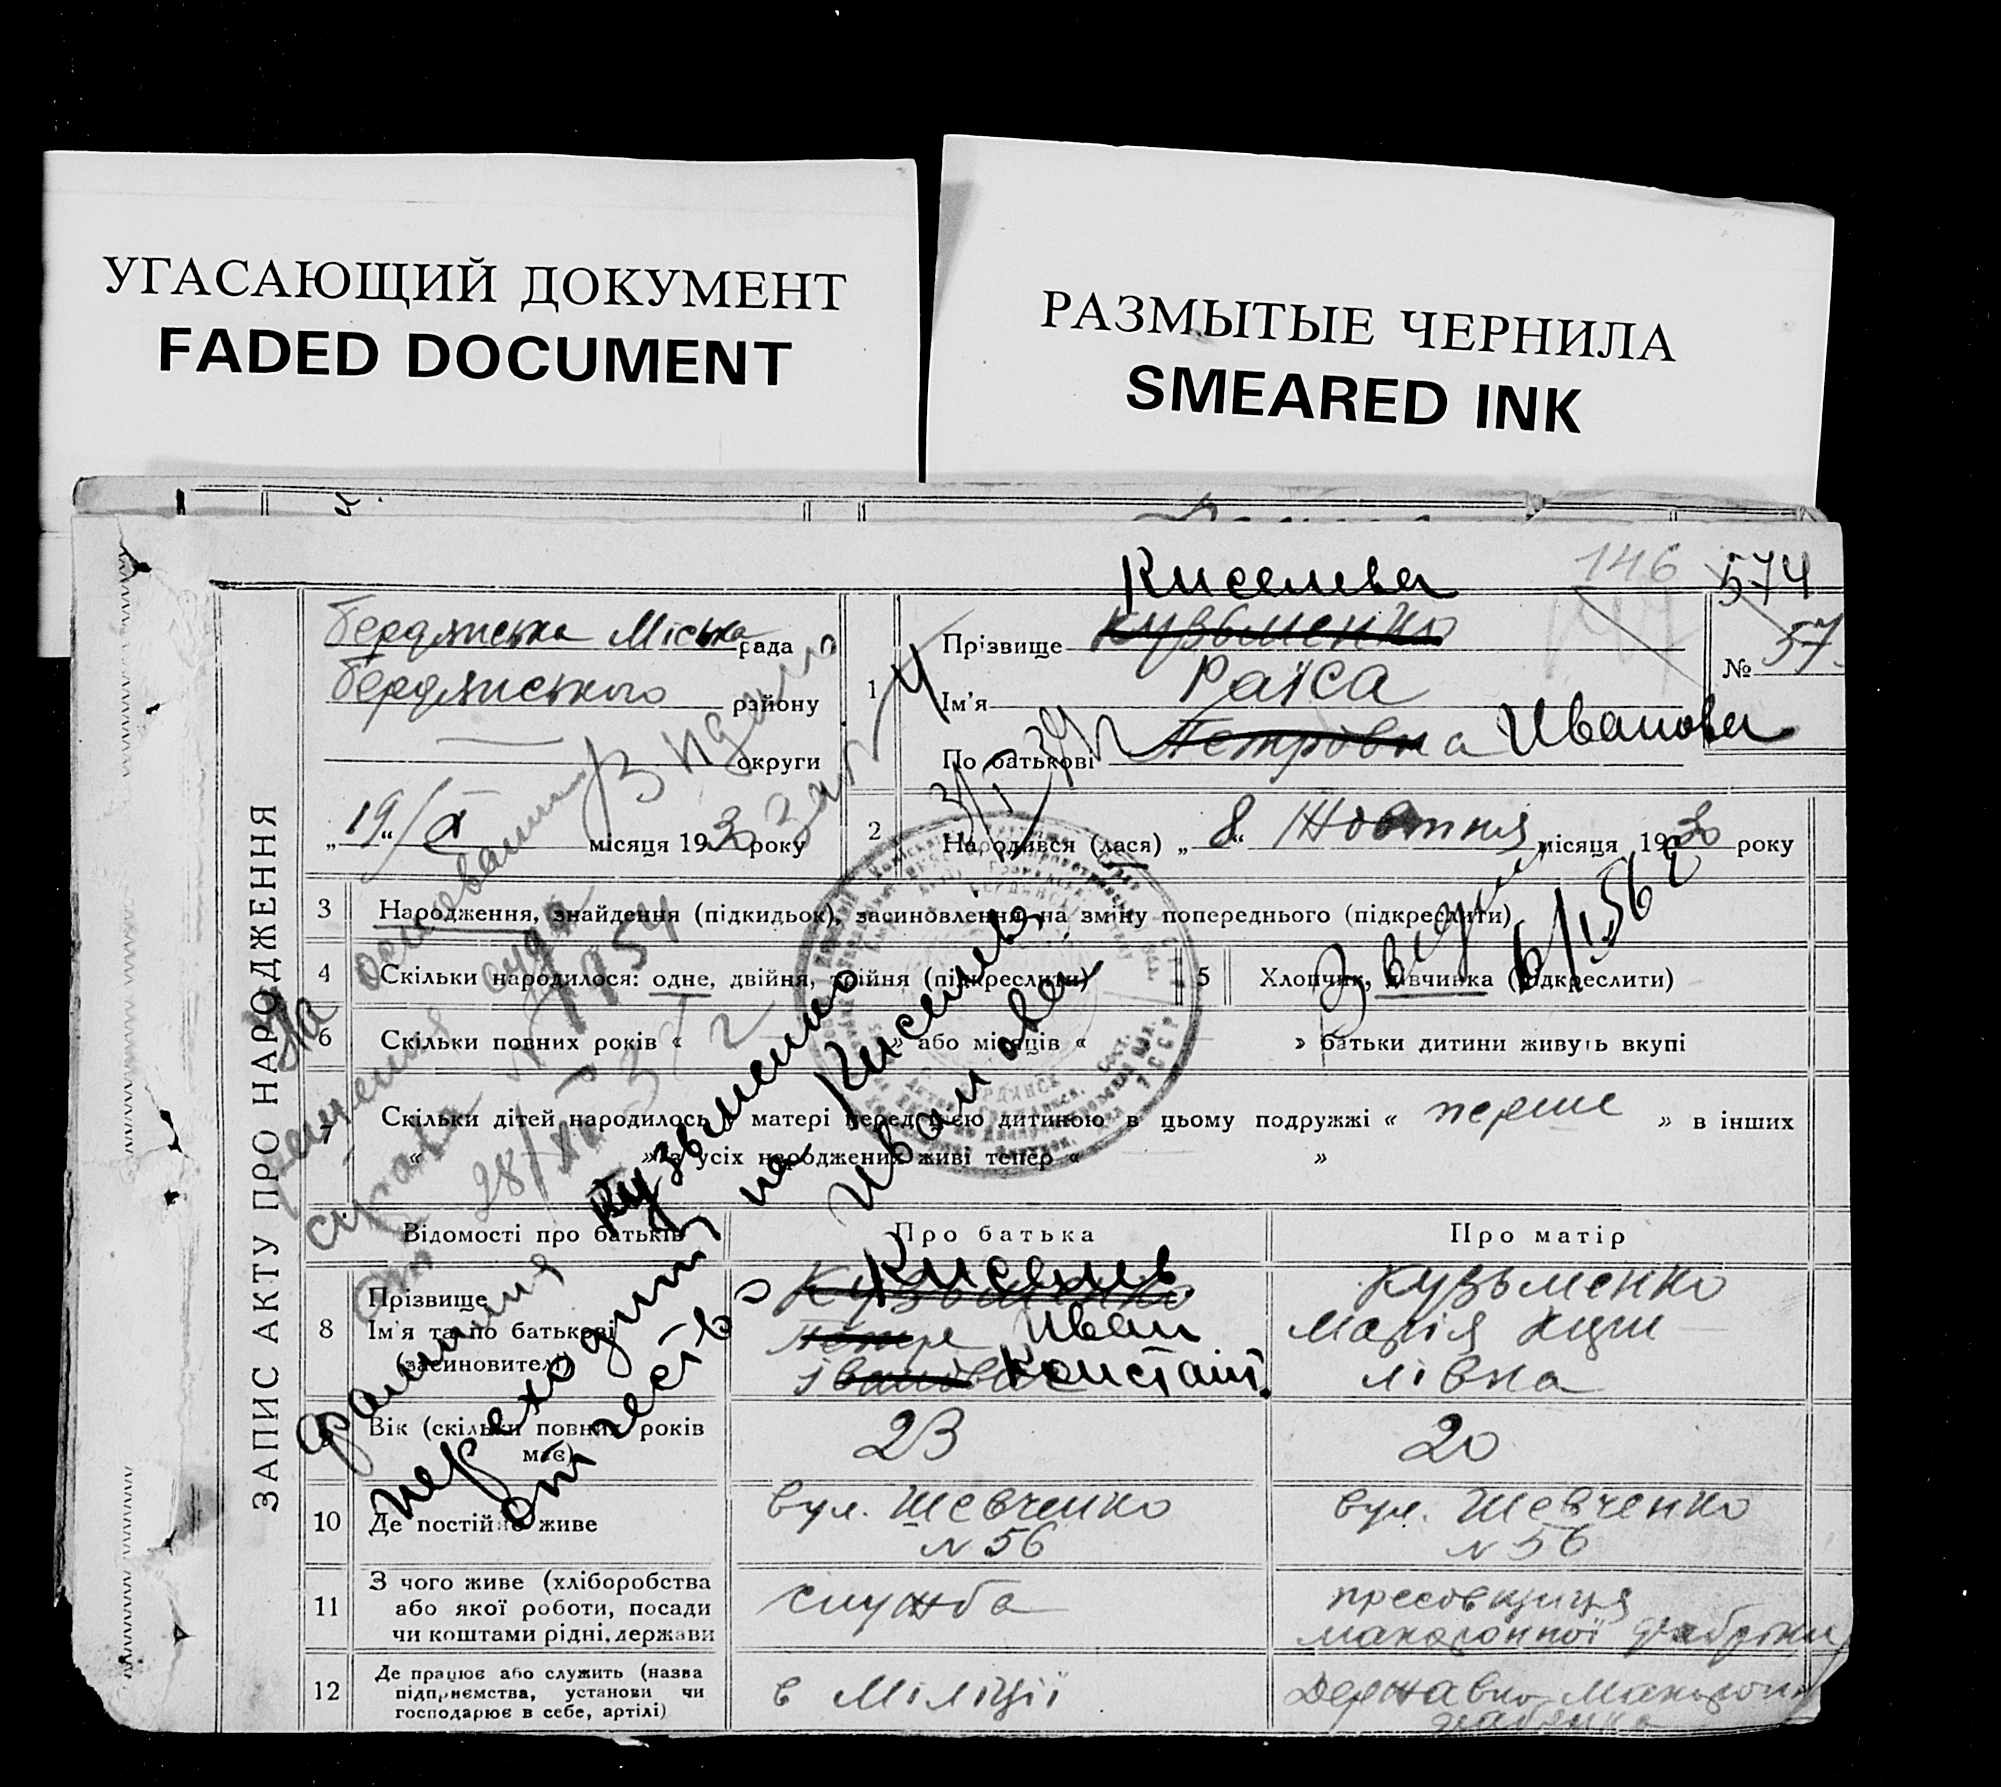 УГАСАЮЩИЙ ДОКУМЕНТ
FADED DOCUMENT
РАЗМЫТЫЕ ЧЕРНИЛА
SMEARED INK
146
574
Киселева
ЗАПИС АКТУ ПРО НАРОДЖЕННЯ
Бердянська Міська рада
Бердянського району
округи
19/X місяця 193 року
1
Прізвище Кузьменко
№ 57
Ім'я Раїса
По батькові Петрівна Иванова
2
Народився (лася) „ 8 “ Жовтня місяця 1930 року
3
Народження, знайдення (підкидьок), засиновлення на зміну попереднього (підкреслити)
4
Скільки народилося: одне, двійня, трійня (підкреслити)
5
Хлопчик, дівчинка (підкреслити)
6
Скільки повних років « » або місяців « » батьки дитини живуть вкупі
7
Скільки дітей народилось у матері перед цією дитиною в цьому подружжі « перше » в інших
« » з усіх народжених живі тепер « »
На основании
решения суда
справа № 1954
от 28/XII
фамилия Кузьменко
переходит на Киселева
отчество Иванова
6/I 56 г
Відомості про батьків
Про батька
Про матір
8
Прізвище
Ім'я та по батькові
(засиновителі)
Кузьменко Киселев
Петро Иван
Іванович Констант.
Кузьменко
Марія Кири-
лівна
Вік (скільки повних років
має)
23
20
10
Де постійно живе
вул. Шевченко
№ 56
вул. Шевченко
№ 56
11
З чого живе (хліборобства
або якої роботи, посади
чи коштами рідні, держави
служба
пресовщиця
макаронної фабрики
12
Де працює або служить (назва
підприємства, установи чи
господарює в себе, артілі)
в Міліції
Державна Макарон
фабрика